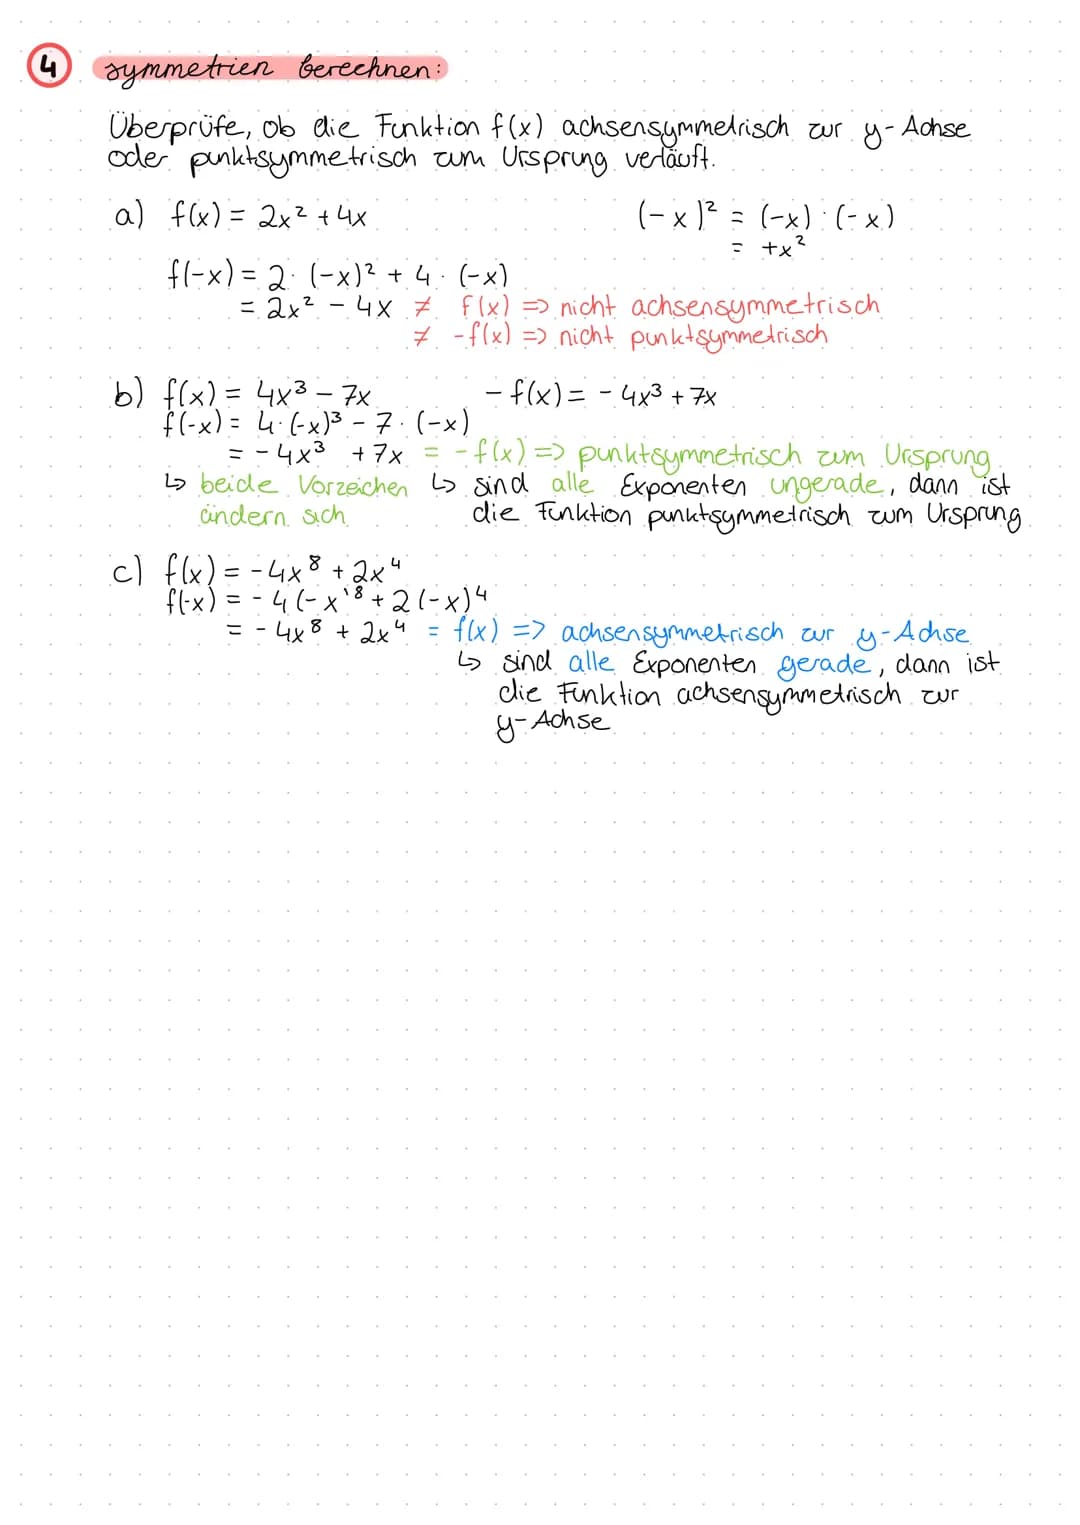 4 symmetrien berechnen:
Überprüfe, ob die Funktion f(x) achsensymmetrisch zur y-Achse
oder punktsymmetrisch zum Ursprung verläuft.
a) f(x) = 2x² + 4x (-x)² = (-x) · (-x)
= +x²
f(-x) = 2 · (-x)² + 4 · (-x)
= 2x² - 4x ≠ f(x) => nicht achsensymmetrisch
≠ -f(x) => nicht punktsymmetrisch
b) f(x) = 4x³ - 7x -f(x) = -4x³ + 7x
f(-x) = 4·(-x)³ - 7 · (-x)
= -4x³ + 7x = -f(x) => punktsymmetrisch zum Ursprung
↳ beide Vorzeichen ↳ sind alle Exponenten ungerade, dann ist
ändern sich die Funktion punktsymmetrisch zum Ursprung
c) f(x) = -4x⁸ + 2x⁴
f(-x) = -4(-x)⁸ + 2(-x)⁴
= -4x⁸ + 2x⁴ = f(x) => achsensymmetrisch zur y-Achse
↳ sind alle Exponenten gerade, dann ist
die Funktion achsensymmetrisch zur
y-Achse